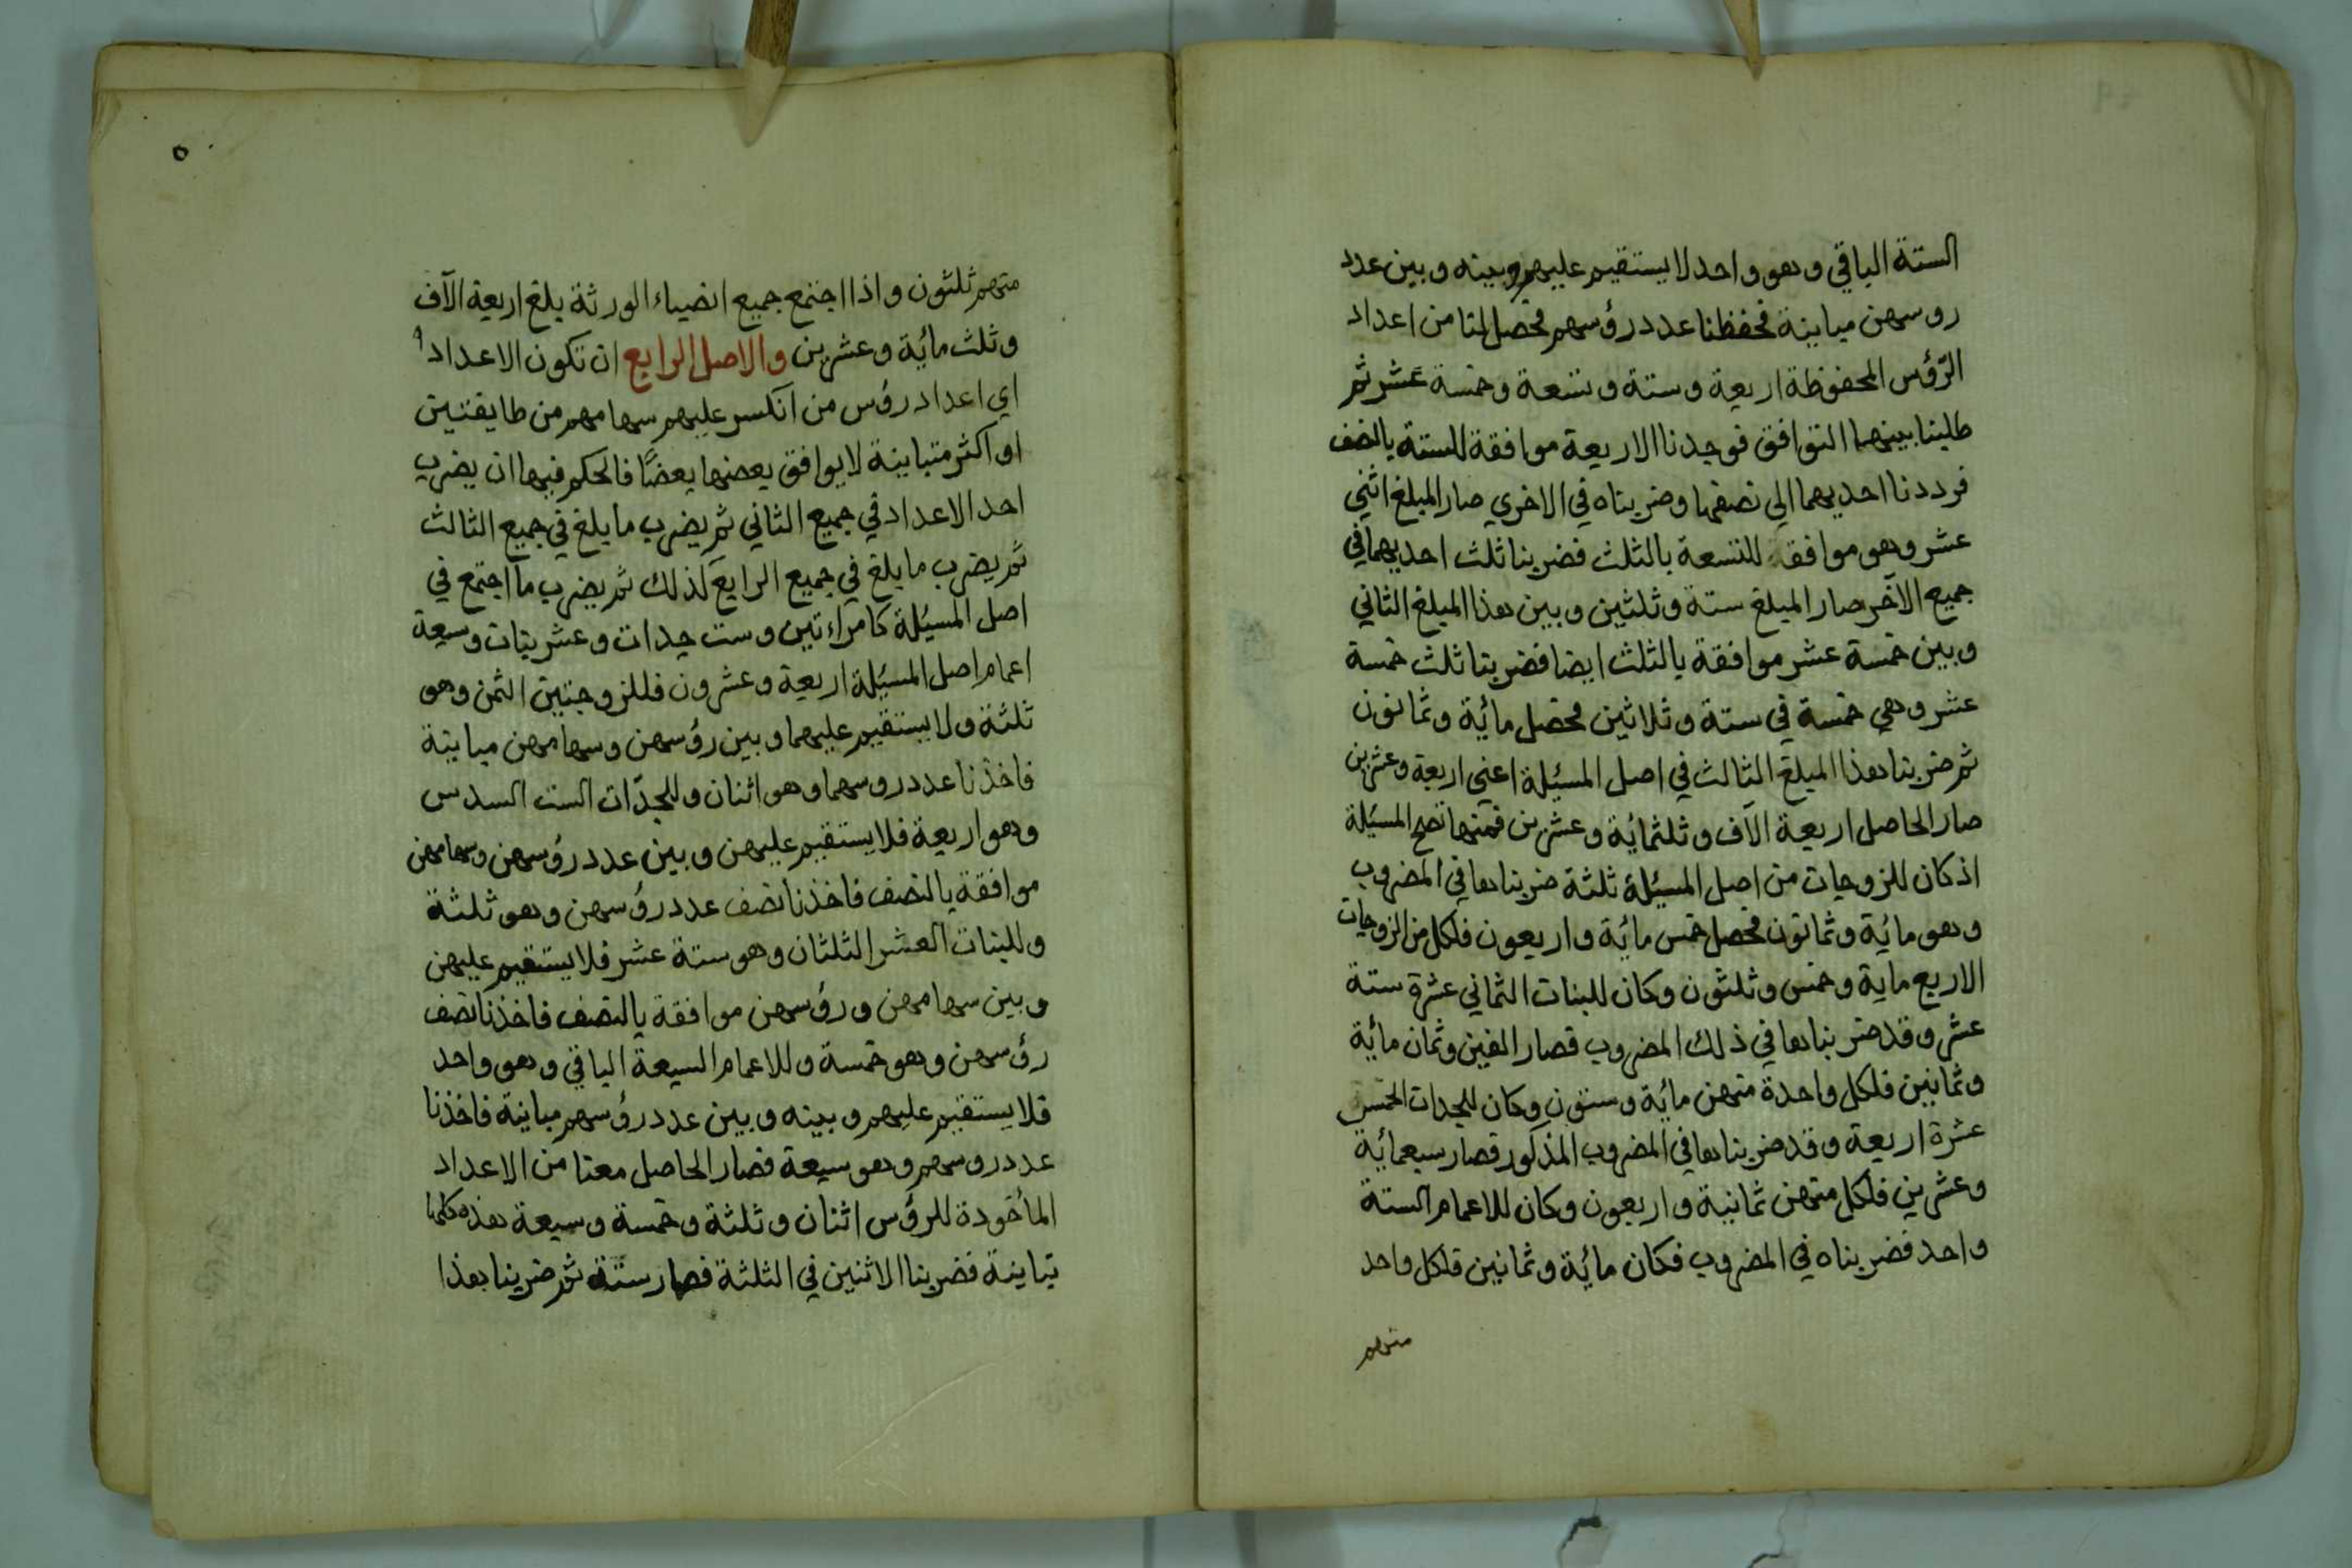 الستة الباقي وهو واحد لا يستقيم عليهم وبينه وبين عدد
روسهن مباينة فحفظنا عدد رؤسهم فحصل لنا من اعداد
الرّؤس المحفوظة اربعة وستة وتسعة وخمسة عشر ثم
طلبنا بينهما التوافق فوجدنا الاربعة موافقة للستة بالنصف
فرددنا احديهما الى نصفها وضربناه في الاخرى صار المبلغ اثني
عشر وهو موافقة للتسعة بالثلث فضربنا ثلث احديهما في
جميع الآخر صار المبلغ ستة وثلثين وبين هذا المبلغ الثاني
وبين خمسة عشر موافقة بالثلث ايضا فضربنا ثلث خمسة
عشر وهي خمسة في ستة وثلاثين فحصل مائة وثمانون
ثم ضربنا هذا المبلغ الثالث في اصل المسئلة اعني اربعة وعشرين
صار الحاصل اربعة الآف وثلثمائة وعشرين فمنها تصح المسئلة
اذ كان للزوجات من اصل المسئلة ثلثة ضربناها في المضروب
وهو مائة وثمانون فحصل خمس مائة واربعون فلكل من الزوجات
الاربع ماية وخمس وثلثون وكان للبنات الثماني عشرة ستة
عشر وقد ضربناها في ذلك المضروب فصار الفين وثمان مائة
وثمانين فلكل واحدة منهن مائة وستون وكان للجدات الخمس
عشرة اربعة وقد ضربناها في المضروب المذكور فصار سبعمائة
وعشرين فلكل منهن ثمانية واربعون وكان للاعمام الستة
واحد فضربناه في المضروب فكان مائة وثمانين فلكل واحد
منهم
٥٠
منهم ثلثون واذا اجتمع جميع انصباء الورثة بلغ اربعة الآف
وثلث مائة وعشرين والاصل الرابع ان تكون الاعداد
اي اعداد رؤس من انكسر عليهم سهامهم من طايفتين
او اكثر متباينة لا يوافق بعضها بعضًا فالحكم فيها ان يضرب
احد الاعداد في جميع الثاني ثم يضرب ما بلغ في جميع الثالث
ثم يضرب ما بلغ في جميع الرابع كذلك ثم يضرب ما اجتمع في
اصل المسئلة كامراءتين وست جدات وعشر بنات وسبعة
اعمام اصل المسئلة اربعة وعشرون فللزوجتين الثمن وهو
ثلثة ولا يستقيم عليهما وبين رؤسهن وسهامهن مباينة
فاخذنا عدد روسهما وهو اثنان وللجدّات الست السدس
وهو اربعة فلا يستقيم عليهن وبين عدد رؤسهن وسهامهن
موافقة بالنصف فاخذنا نصف عدد رؤسهن وهو ثلثة
وللبنات العشر الثلثان وهو ستة عشر فلا يستقيم عليهن
وبين سهامهن ورؤسهن موافقة بالنصف فاخذنا نصف
رؤسهن وهو خمسة وللاعمام السبعة الباقي وهو واحد
فلا يستقيم عليهم وبينه وبين عدد رؤسهم مباينة فاخذنا
عدد روسهم وهو سبعة فصار الحاصل معنا من الاعداد
المأخوذة للرؤس اثنان وثلثة وخمسة وسبعة هذه كلها
تباينة فضربنا الاثنين في الثلثة فصار ستة ثم ضربنا هذا